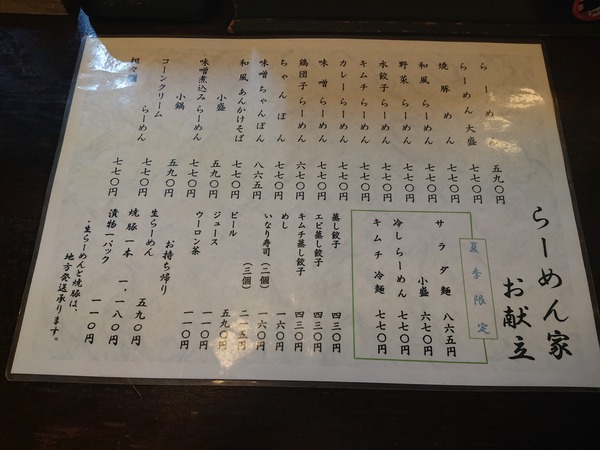 らーめん家
お献立
らーめん 五九〇円
らーめん大盛 七七〇円
焼豚めん 七七〇円
和風らーめん 七七〇円
野菜らーめん 七七〇円
水餃子らーめん 七七〇円
キムチらーめん 七七〇円
カレーらーめん 七七〇円
味噌らーめん 七七〇円
鶏団子らーめん 六七〇円
ちゃんぽん 七七〇円
味噌ちゃんぽん 八六五円
和風あんかけそば 七七〇円
小盛 五九〇円
味噌煮込みらーめん 七七〇円
小鍋 五九〇円
コーンクリーム
らーめん 七七〇円
担々麺 七七〇円
夏季限定
サラダ麺 八六五円
小盛 六七〇円
冷しらーめん 七七〇円
キムチ冷麺 七七〇円
蒸し餃子 四三〇円
エビ蒸し餃子 四三〇円
キムチ蒸し餃子 四三〇円
めし 一六〇円
いなり寿司（二個） 一六〇円
（三個） 二一五円
ビール 五九〇円
ジュース 一一〇円
ウーロン茶 一一〇円
お持ち帰り
生らーめん 五九〇円
焼豚一本 一、一八〇円
漬物一パック 一一〇円
・生らーめんと焼豚は、
地方発送承ります。